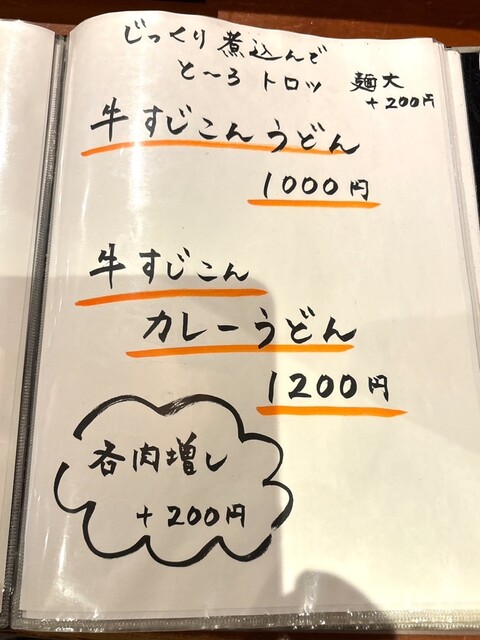 じっくり煮込んで
と〜ろトロッ
麺大
+200円
牛すじこんうどん
1000円
牛すじこん
カレーうどん
1200円
各肉増し
+200円